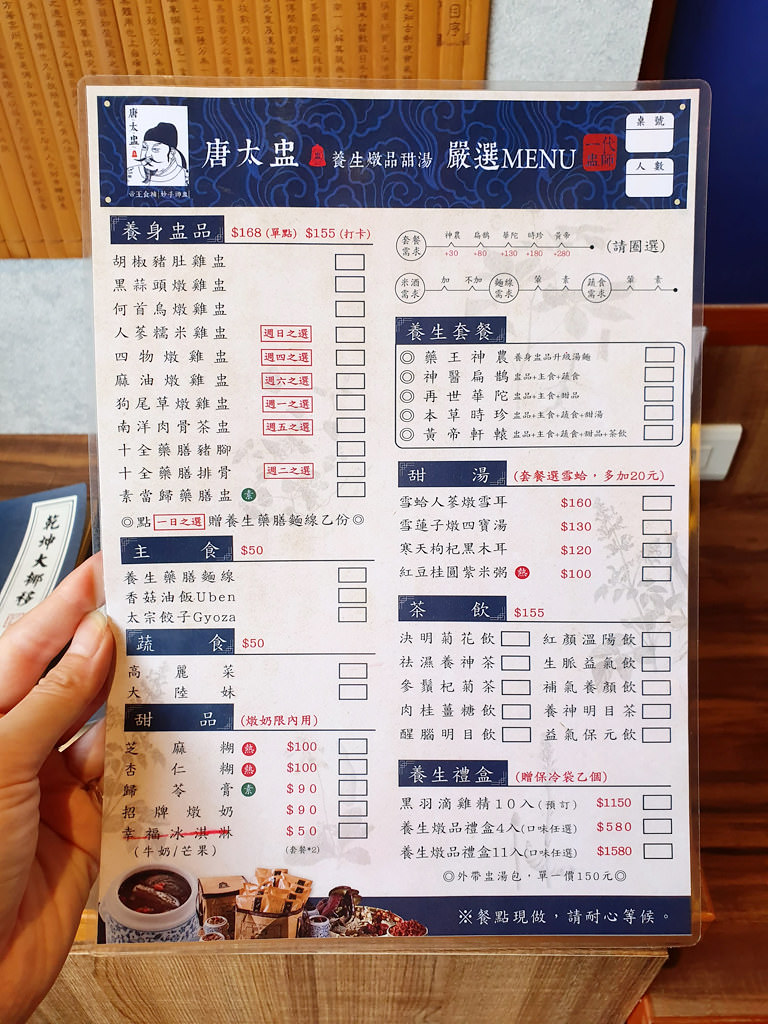 唐太盅
帝王食補 妙手御盅
唐太盅 養生燉品甜湯 嚴選MENU 一代盅師
桌號
人數
養身盅品 $168 (單點) $155 (打卡)
胡椒豬肚雞盅
黑蒜頭燉雞盅
何首烏燉雞盅
人蔘糯米雞盅 週日之選
四物燉雞盅 週四之選
麻油燉雞盅 週六之選
狗尾草燉雞盅 週一之選
南洋肉骨茶盅 週五之選
十全藥膳豬腳
十全藥膳排骨 週二之選
素當歸藥膳盅 素
◎點 一日之選 贈養生藥膳麵線乙份◎
主食 $50
養生藥膳麵線
香菇油飯Uben
太宗餃子Gyoza
蔬食 $50
高麗菜
大陸妹
甜品 (燉奶限內用)
芝麻糊 熱 $100
杏仁糊 熱 $100
歸苓膏 素 $90
招牌燉奶 $90
幸福冰淇淋 $50
(牛奶/芒果) (套餐*2)
套餐需求 神農 扁鵲 華陀 時珍 黃帝 (請圈選)
+30 +80 +130 +180 +280
米酒需求 加 不加 麵線需求 葷 素 蔬食需求 葷 素
養生套餐
◎ 藥王神農 養身盅品升級湯麵
◎ 神醫扁鵲 盅品+主食+蔬食
◎ 再世華陀 盅品+主食+甜品
◎ 本草時珍 盅品+主食+蔬食+甜湯
◎ 黃帝軒轅 盅品+主食+蔬食+甜品+茶飲
甜湯 (套餐選雪蛤，多加20元)
雪蛤人蔘燉雪耳 $160
雪蓮子燉四寶湯 $130
寒天枸杞黑木耳 $120
紅豆桂圓紫米粥 熱 $100
茶飲 $155
決明菊花飲 紅顏溫陽飲
祛濕養神茶 生脈益氣飲
參鬚杞菊茶 補氣養顏飲
肉桂薑糖飲 養神明目茶
醒腦明目飲 益氣保元飲
養生禮盒 (贈保冷袋乙個)
黑羽滴雞精10入(預訂) $1150
養生燉品禮盒4入(口味任選) $580
養生燉品禮盒11入(口味任選) $1580
◎外帶盅湯包，單一價150元◎
※餐點現做，請耐心等候。
乾坤大挪移